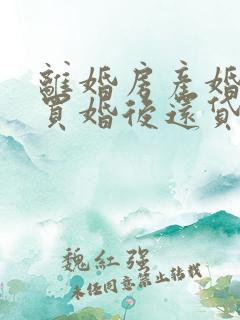 離婚房產婚
買婚後還貸
魏紅强
未任同意禁止轉載